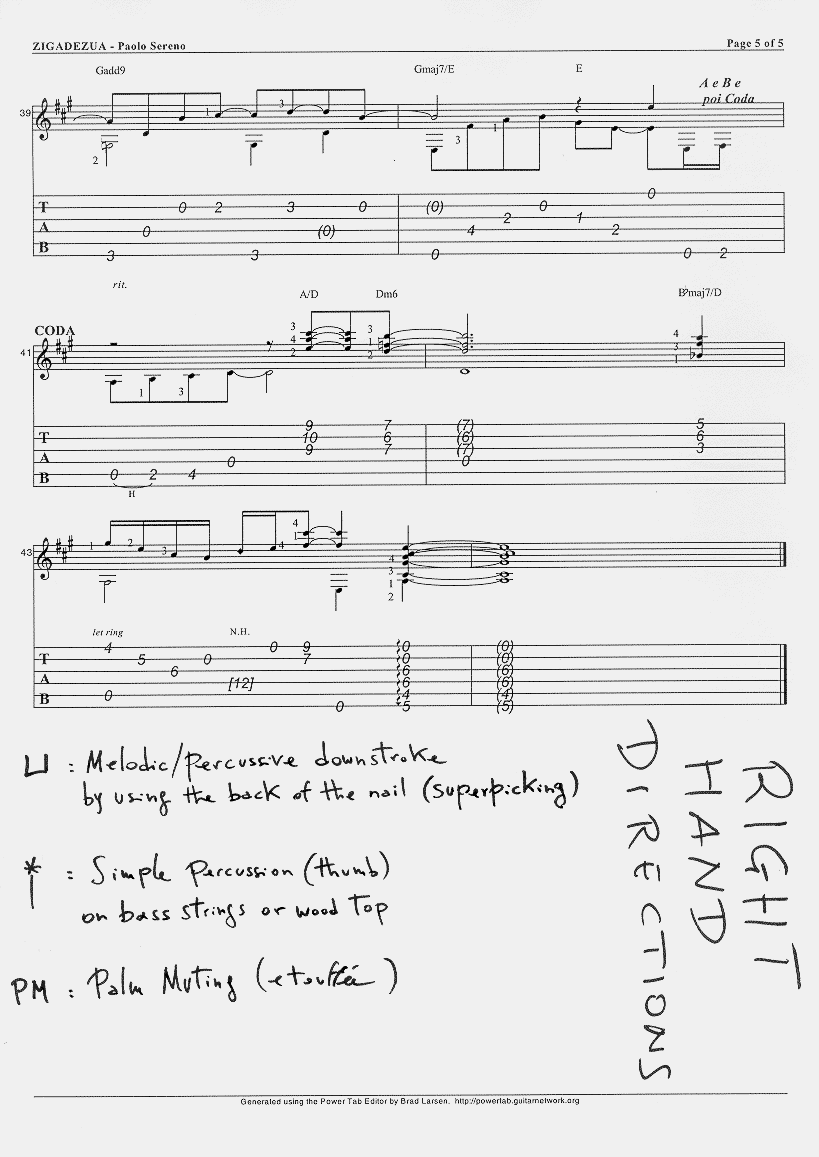 ZIGADEZUA - Paolo Sereno Page 5 of 5
Gadd9 Gmaj7/E E
A e B e
poi Coda
39
1 3
2 3 1
T A B
0 2 3 0 (0) 0 0
0 (0) 4 2 1 2
3 3 0 0 2
rit.
A/D Dm6 B♭maj7/D
CODA
41
3 4 2 3 1 2 4 3 1
1 3
T A B
9 7 (7) 5
10 6 (6) 6
9 7 (7) 3
0 0
0 2 4
H
43
1 2 3 4 4 1 4 3 1 2
let ring N.H.
T A B
4 0 9 0 (0)
5 0 7 0 (0)
6 6 (6)
[12] 6 (6)
0 4 (4)
0 5 (5)
⊔ : Melodic/percussive downstroke
by using the back of the nail (superpicking)
* : Simple percussion (thumb)
on bass strings or wood top
PM : Palm Muting (etouffée)
RIGHT
HAND
DIRECTIONS
Generated using the Power Tab Editor by Brad Larsen. http://powertab.guitarnetwork.org